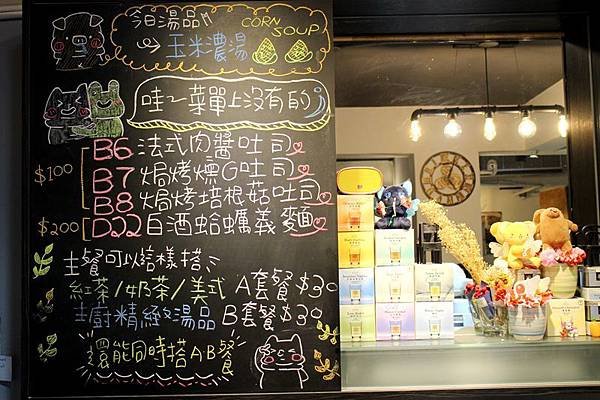 今日湯品
CORN SOUP
玉米濃湯
哇~菜單上沒有的
$100
B6 法式肉醬吐司
B7 焗烤燻G吐司
B8 焗烤培根菇吐司
$200 D22 白酒蛤蠣義麵
主餐可以這樣搭
紅茶/奶茶/美式 A套餐 $30
主廚精緻湯品 B套餐 $30
還能同時搭AB餐